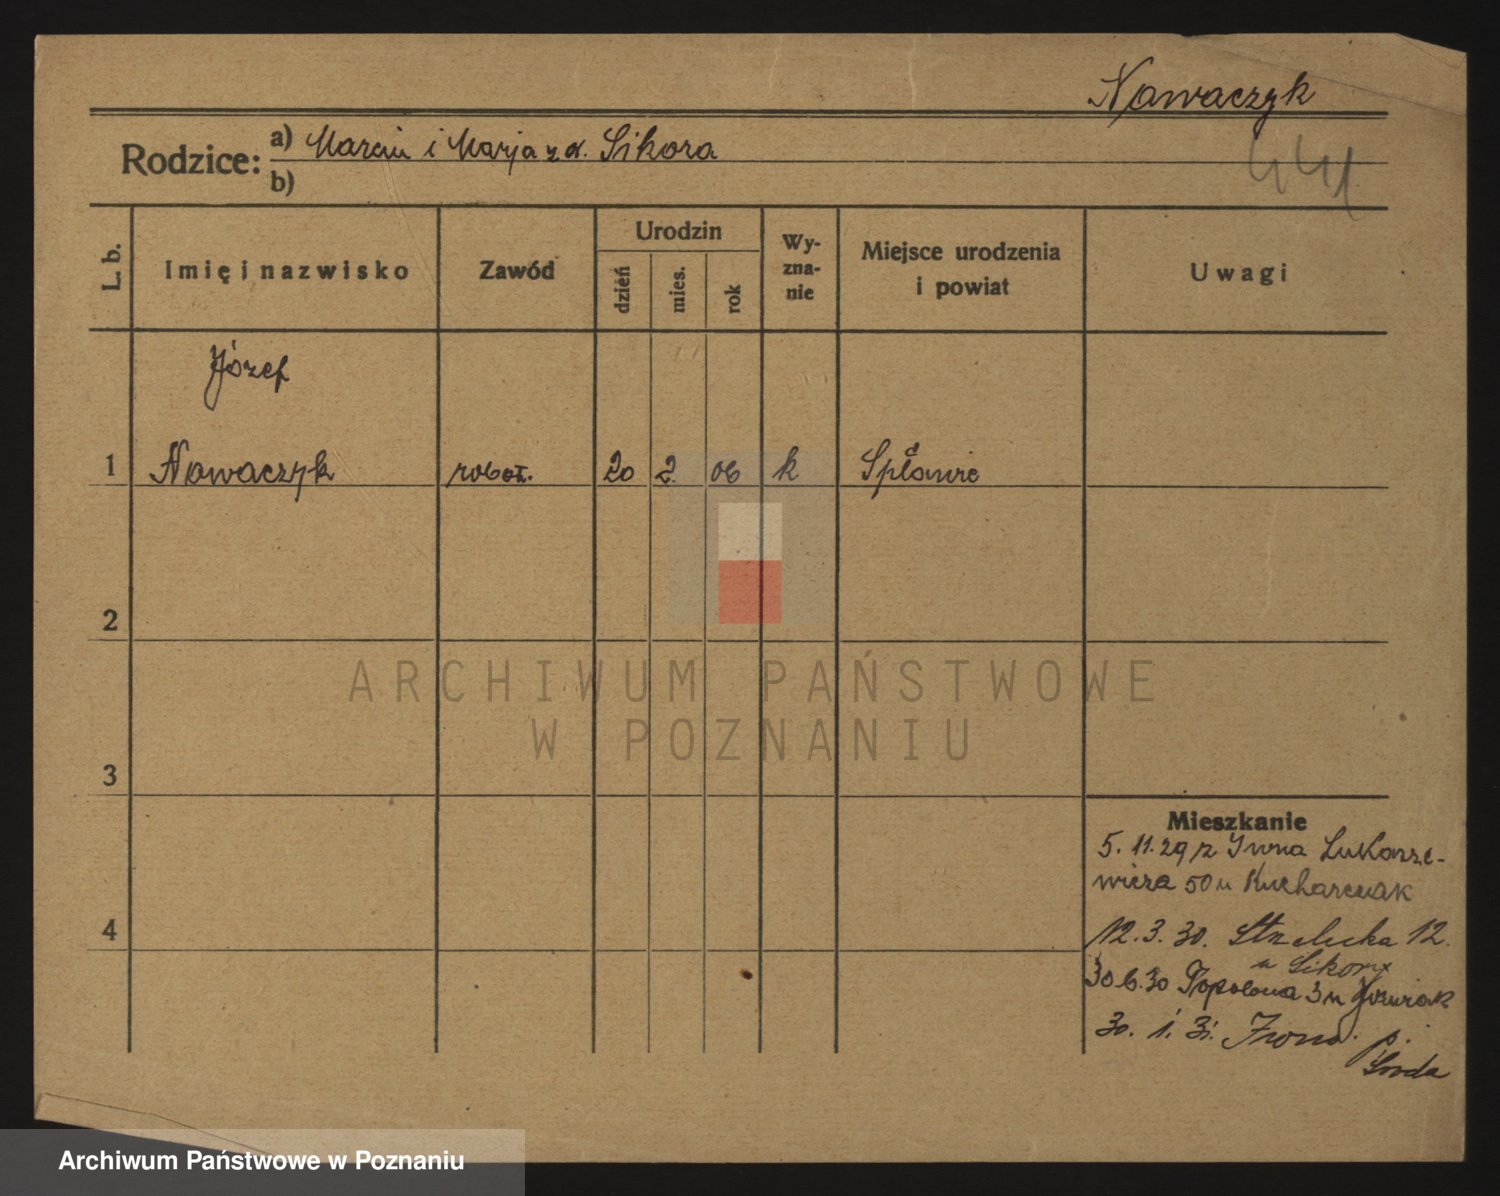 Nowaczyk
441
Rodzice: a) Marcin i Marja z d. Sikora
b)
L. b. Imię i nazwisko Zawód Urodzin dzień mies. rok Wy-zna-nie Miejsce urodzenia i powiat Uwagi
Józef
1 Nowaczyk robot. 20 2. 06 k Spławie
2
ARCHIWUM PAŃSTWOWE
W POZNANIU
3
Mieszkanie
5. 11. 29 z
wicza 50 u Kucharczak
4
12. 3. 30. Strzelecka 12.
u Sikory
30 6. 30 Topolowa 3 u Józwiak
30. 1. 31. p.
Środa
Archiwum Państwowe w Poznaniu